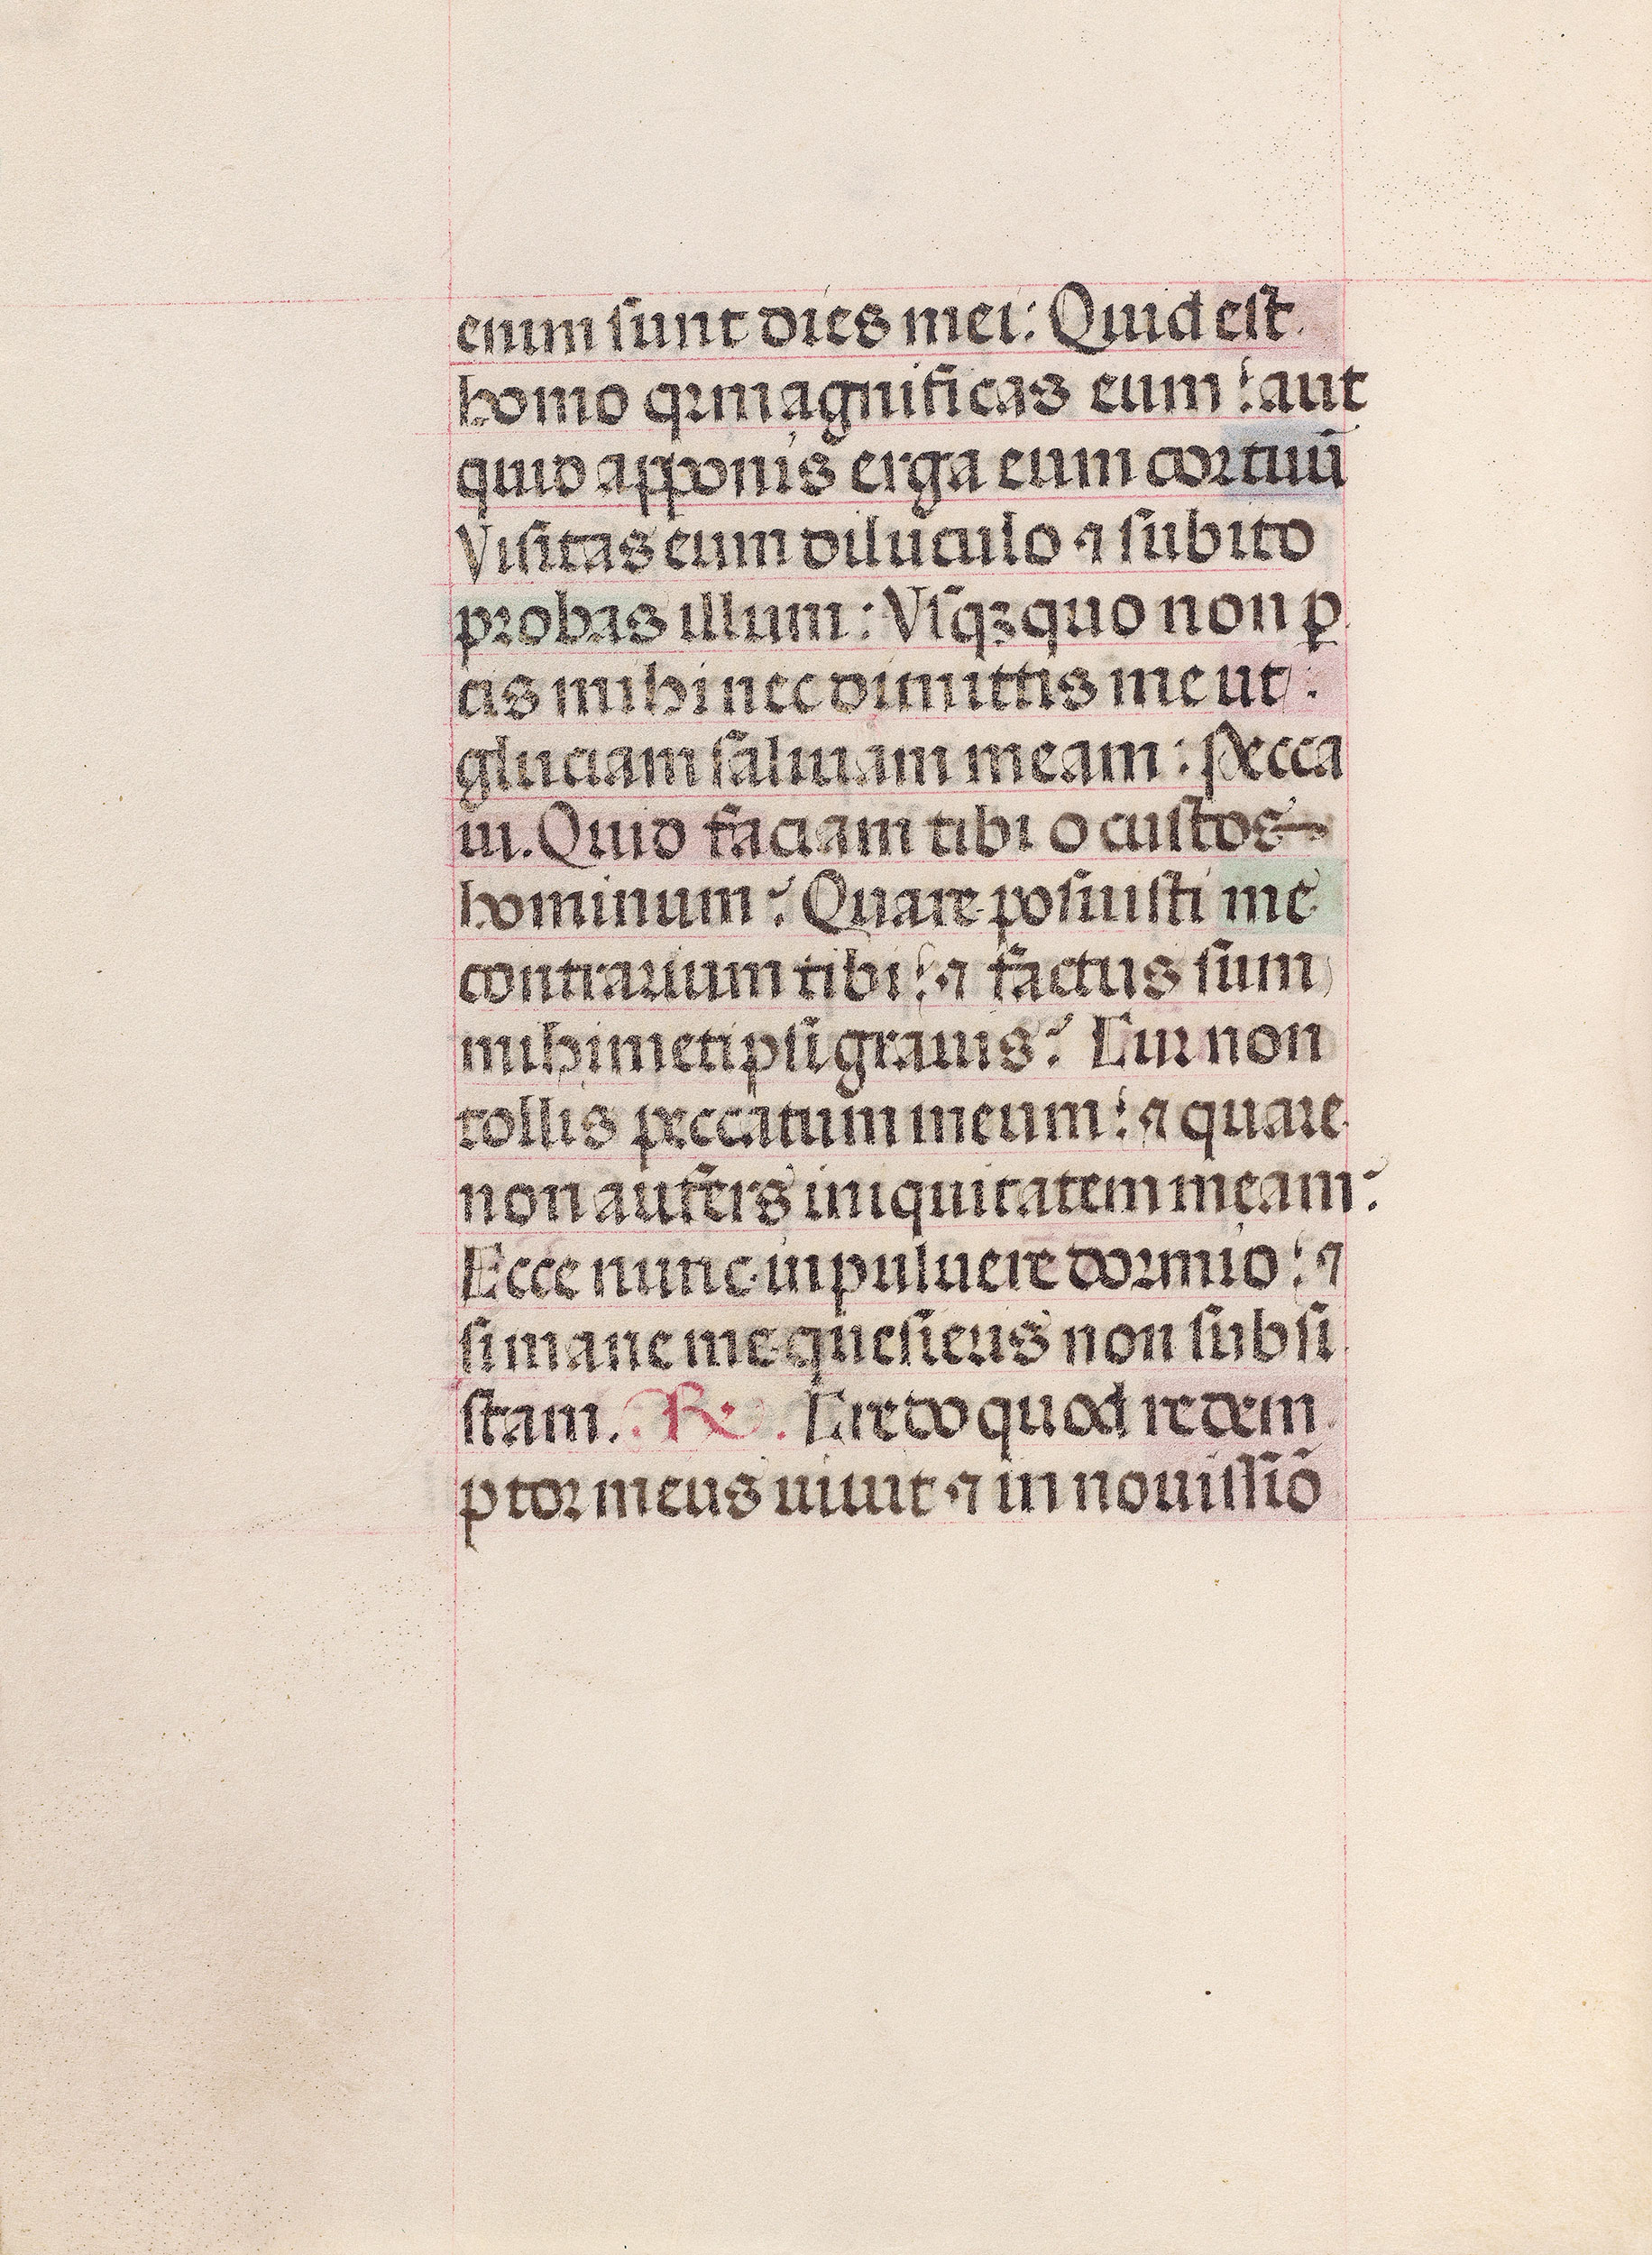 enim sunt dies mei: Quid est
homo qr magnificas eum: aut
quid apponis erga eum cor tuū
Visitas eum diluculo ⁊ subito
probas illum: Vsqꝫquo non ꝑ
cis mihi nec dimittis me ut
gluciam saliuam meam: Pecca
ui. Quid faciam tibi o custos
hominum? Quare posuisti me
contrarium tibi: ⁊ factus sum
mihimetipsi grauis? Cur non
tollis peccatum meum: ⁊ quare
non aufers iniquitatem meam?
Ecce nunc in puluere dormio: ⁊
si mane me quesieris non subsi
stam. Re. Credo quod redem
ptor meus uiuit ⁊ in nouissiō